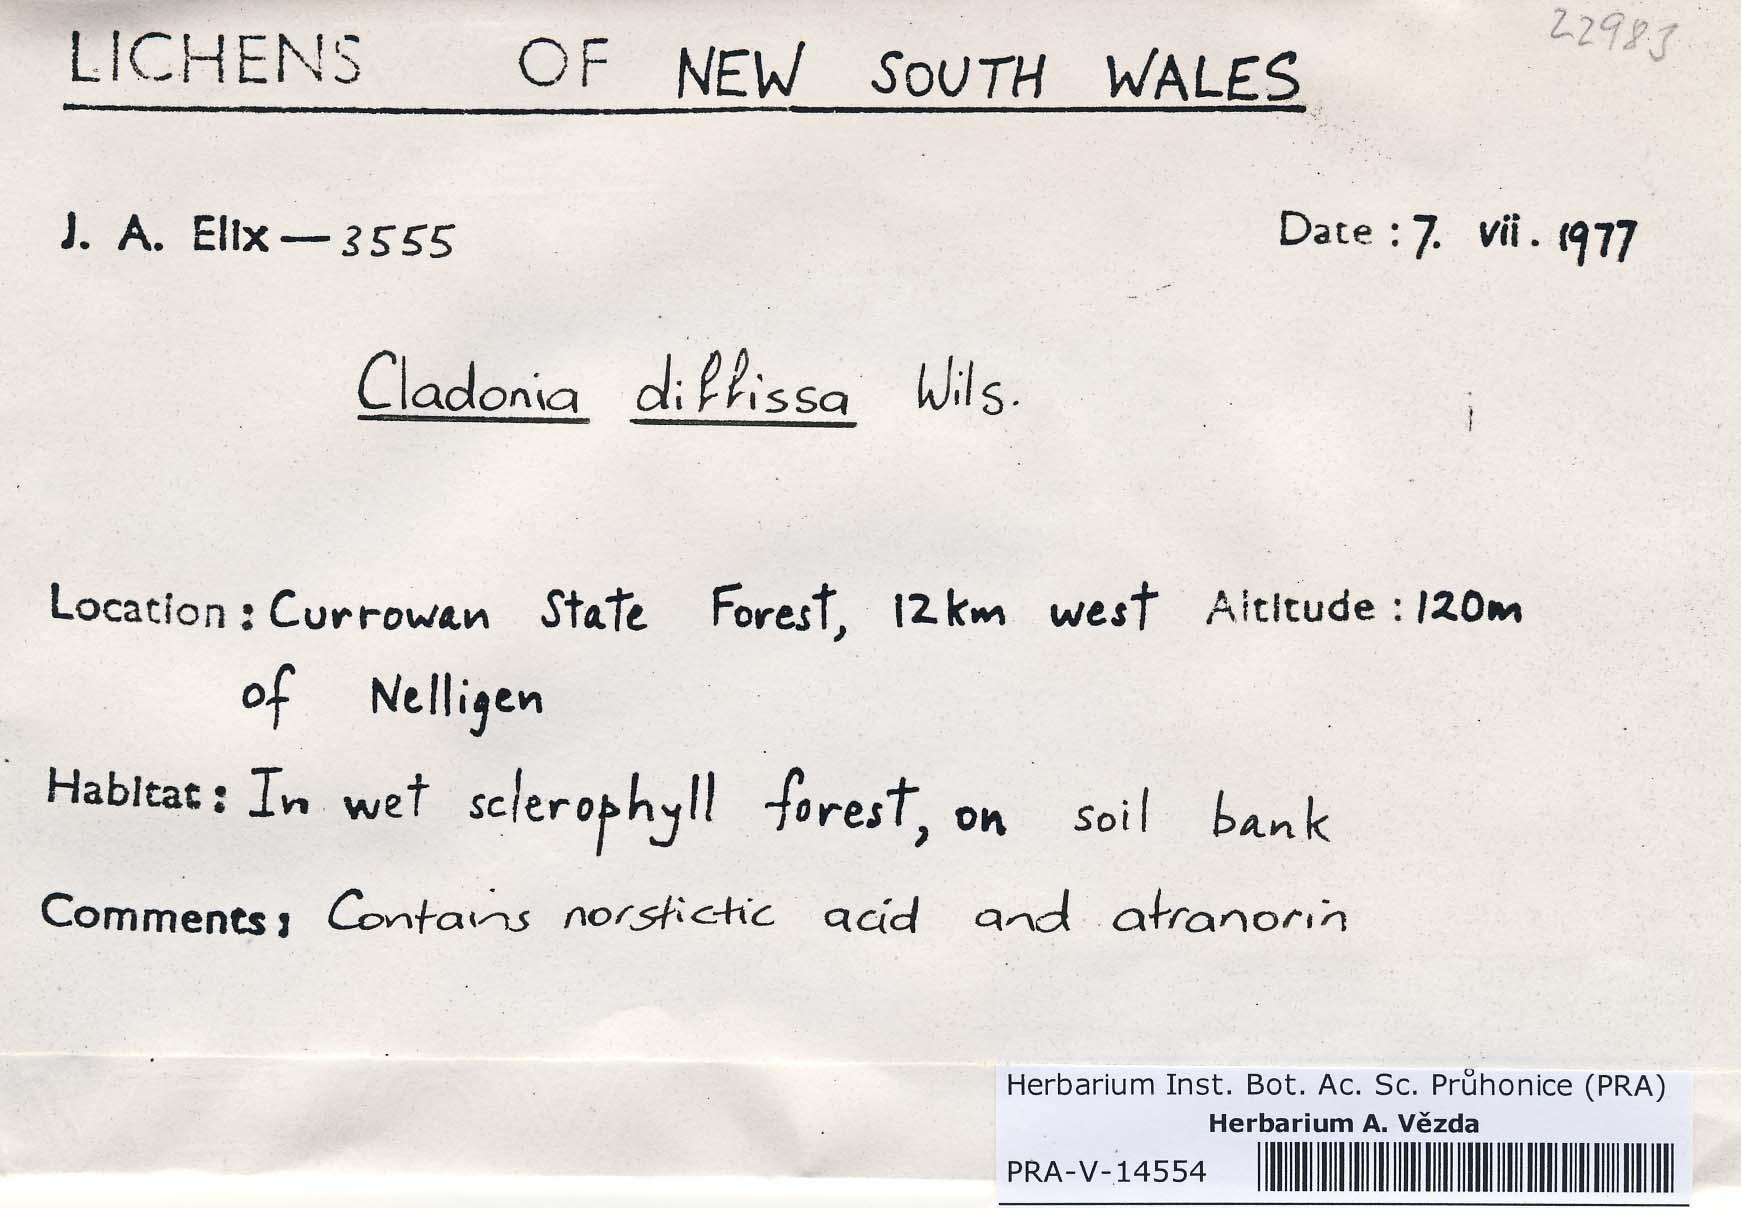 22983
LICHENS OF NEW SOUTH WALES
J. A. Elix — 3555 Date : 7. vii. 1977
Cladonia diffissa Wils.
Location : Currowan State Forest, 12km west Altitude : 120m
of Nelligen
Habitat : In wet sclerophyll forest, on soil bank
Comments ; Contains norstictic acid and atranorin
Herbarium Inst. Bot. Ac. Sc. Průhonice (PRA)
Herbarium A. Vězda
PRA-V-14554